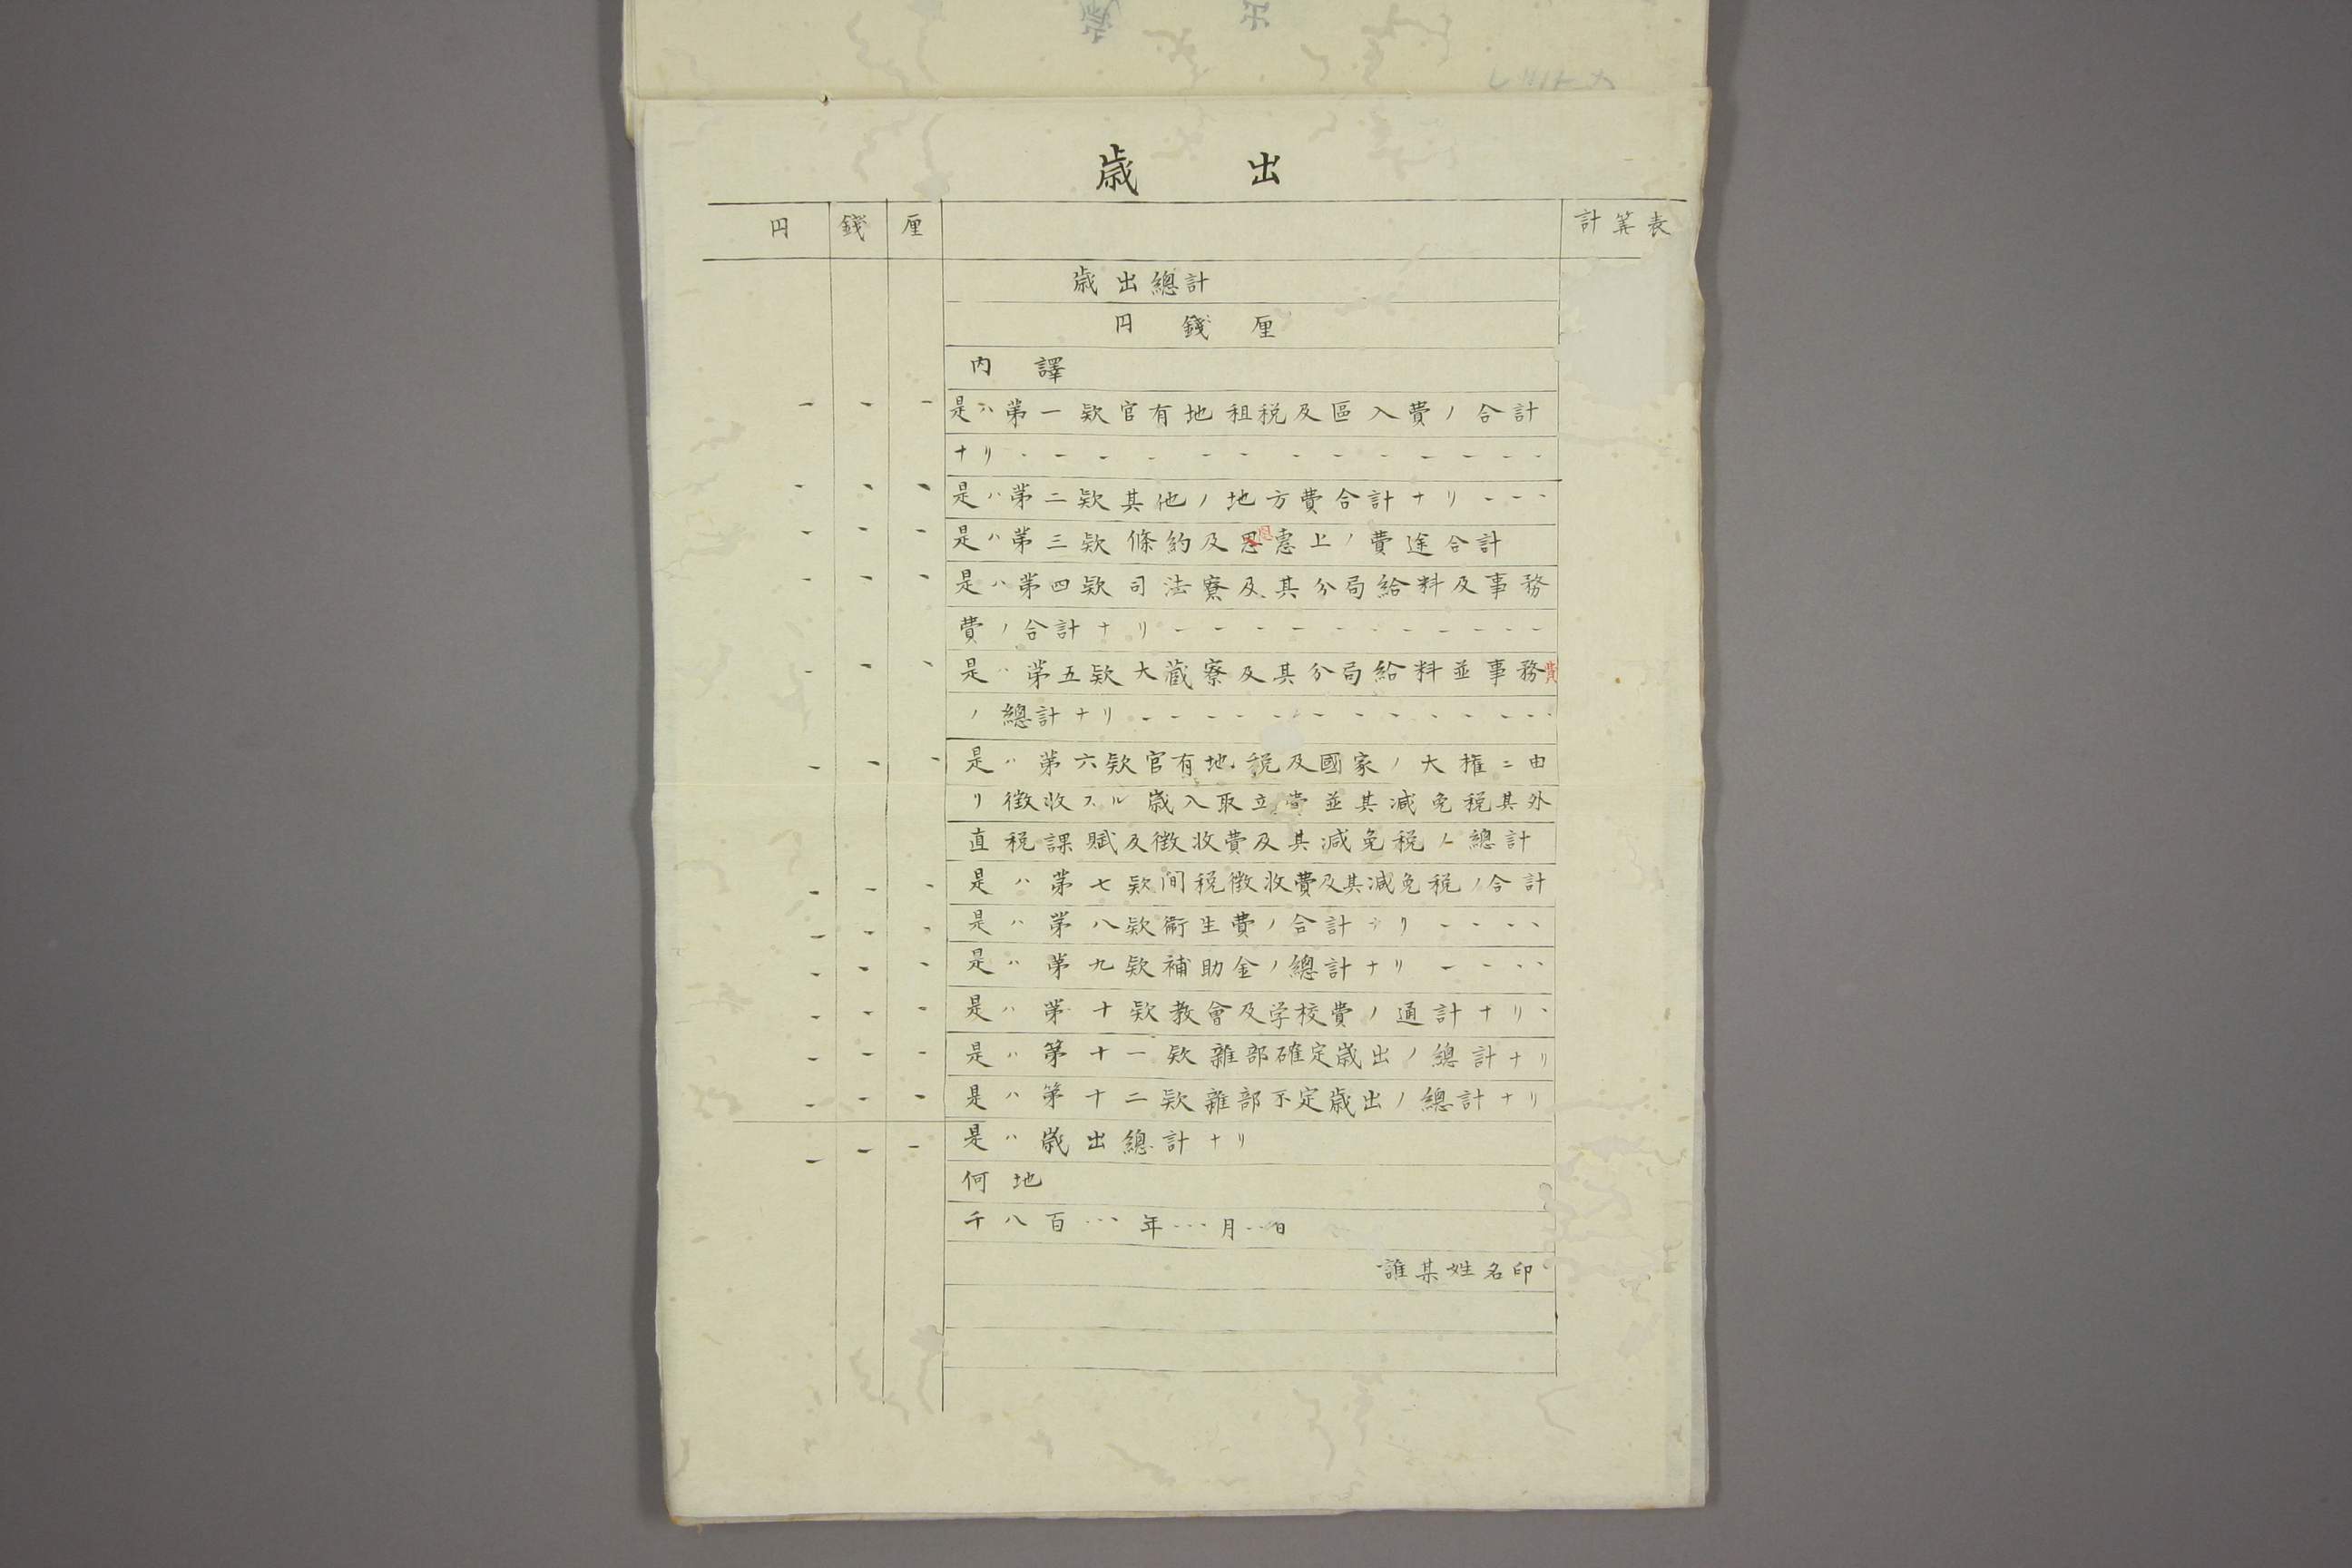 歳 出
円 錢 厘 計筭表
歳出總計
円 錢 厘
内 譯
是ハ第一欵官有地租税及區入費ノ合計
ナリ
是ハ第二欵其他ノ地方費合計ナリ
是ハ第三欵條約及恩惠上ノ費途合計
是ハ第四欵司法寮及其分局給料及事務
費ノ合計ナリ
是ハ第五欵大藏寮及其分局給料並事務費
ノ總計ナリ
是ハ第六欵官有地税及國家ノ大権ニ由
リ徴收スル歳入取立費並其減免税其外
直税課賦及徴收費及其減免税ノ總計
是ハ第七欵间税徴收費及其減免税ノ合計
是ハ第八欵衛生費ノ合計ナリ
是ハ第九欵補助金ノ總計ナリ
是ハ第十欵教會及学校費ノ通計ナリ
是ハ第十一欵雜部確定歳出ノ總計ナリ
是ハ第十二欵雜部不定歳出ノ總計ナリ
是ハ歳出總計ナリ
何地
千八百…年…月…日
誰某姓名印